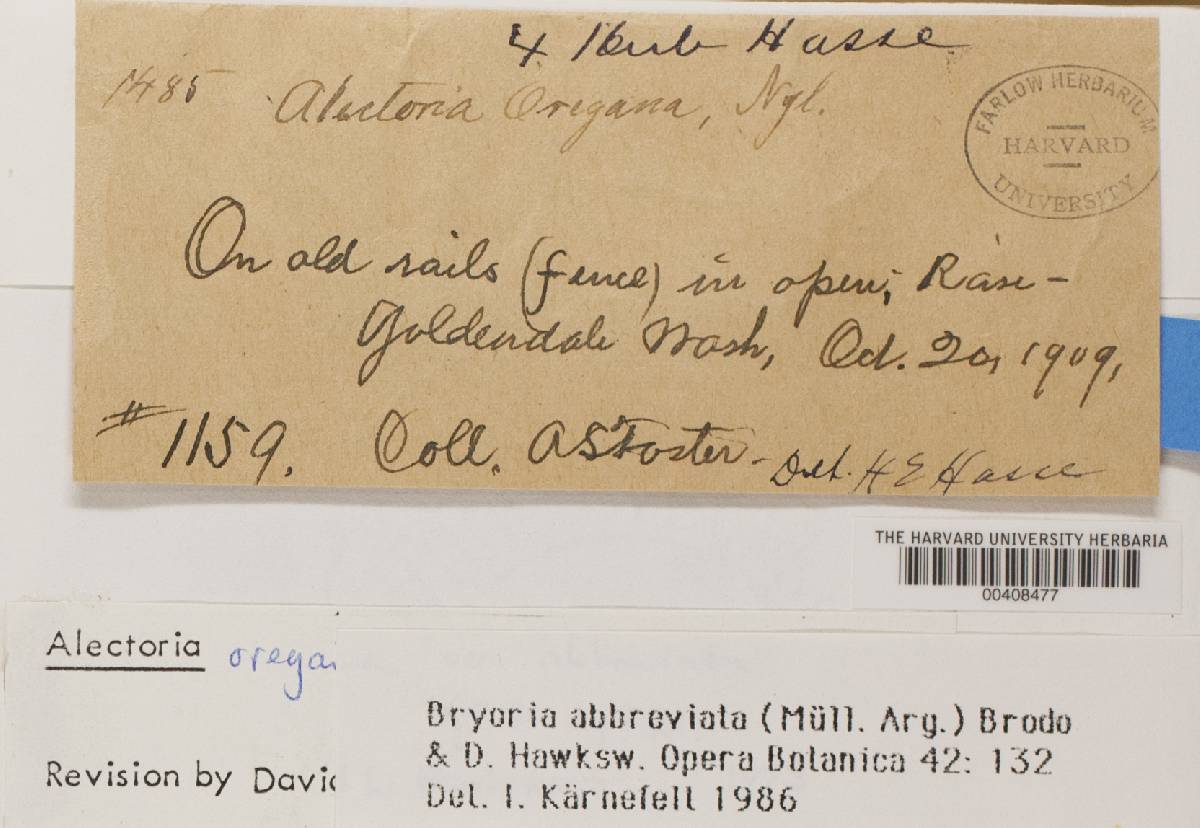 Herb Hasse
1485 Alectoria Oregana, Nyl.
FARLOW HERBARIUM
HARVARD
UNIVERSITY
On old rails (fence) in open; Rare -
Goldendale Wash, Oct. 20, 1909,
#1159. Coll. AS Foster - Det. H E Hasse
THE HARVARD UNIVERSITY HERBARIA
00408477
Alectoria orega
Revision by Davi
Bryoria abbreviata (Müll. Arg.) Brodo
& D. Hawksw. Opera Botanica 42: 132
Det. I. Kärnefelt 1986